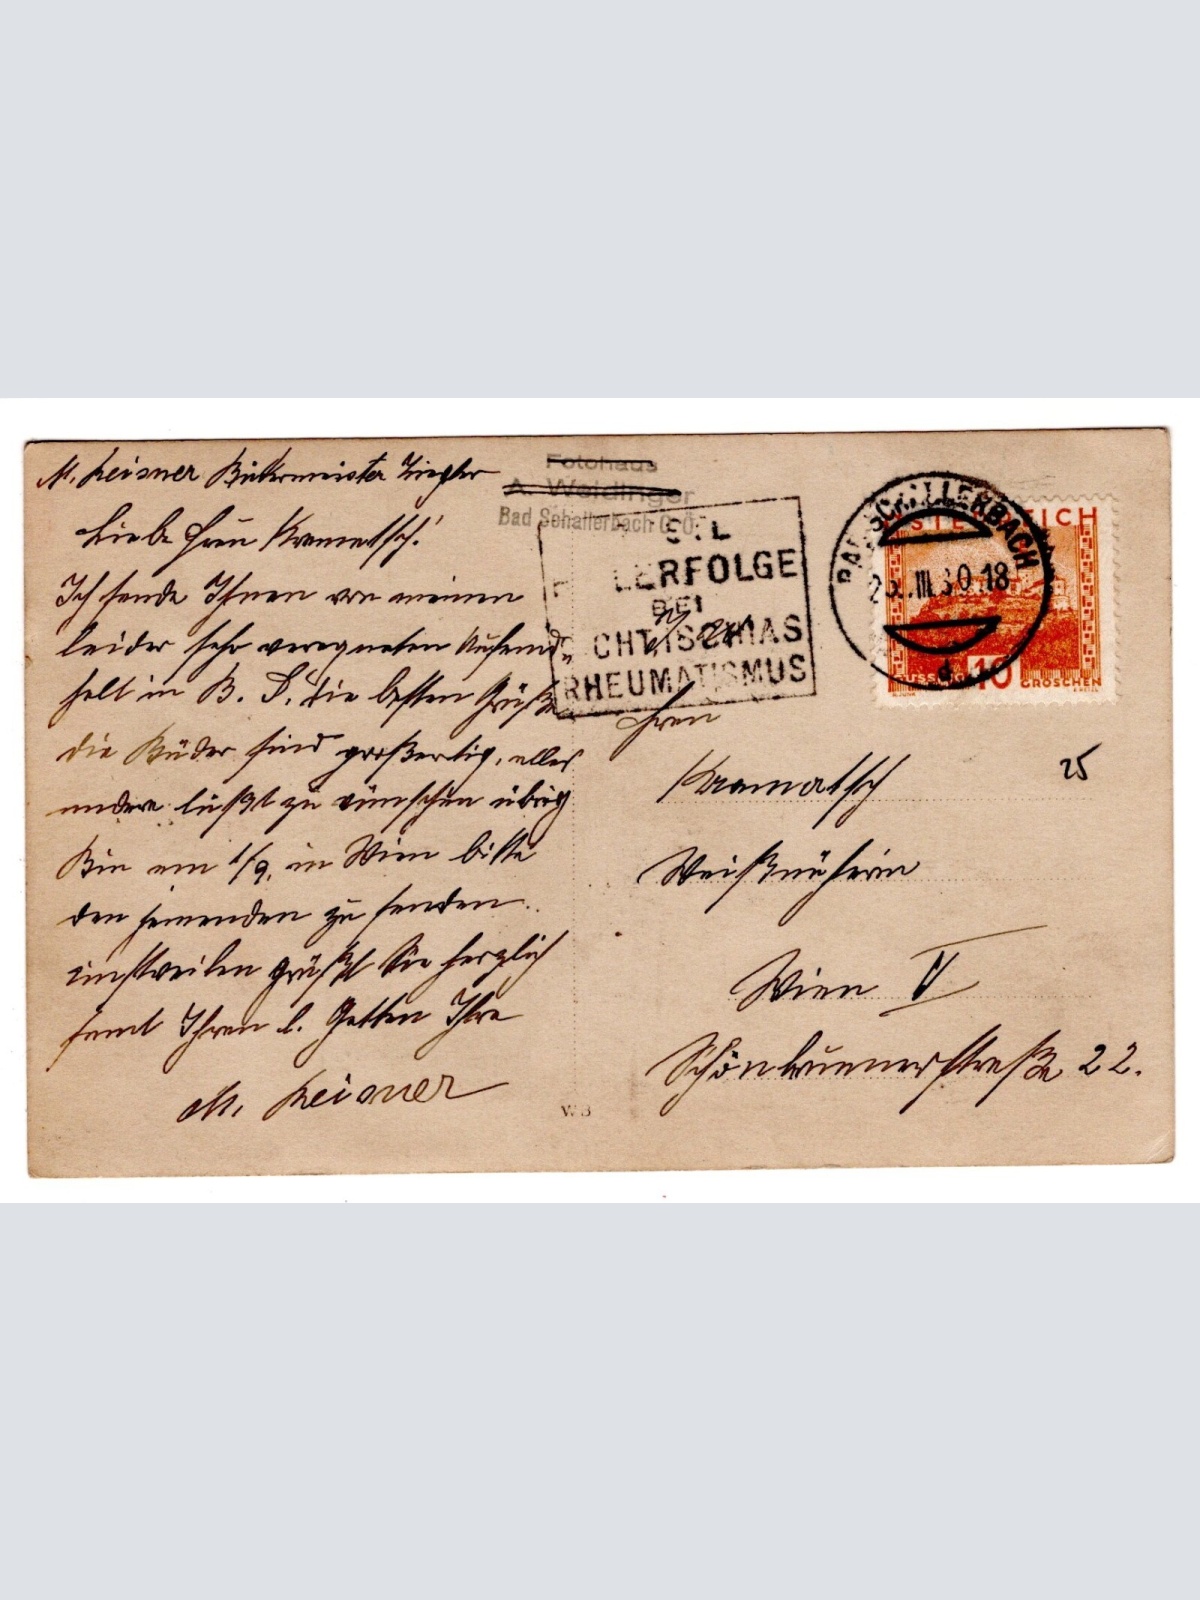 M. Leisner Bäckermeister Ziegler
Liebe Frau Kramatsch!
Ich sende Ihnen von meinem
leider sehr verregneten Aufent-
halt in B. S. die besten Grüße
die Bäder sind großartig, alles
andere läßt zu wünschen übrig
Bin am 1/9. in Wien bitte
den zu senden.
einstweilen grüßt Sie herzlich
samt Ihren l. Gatten Ihre
M. Leisner
Fotohaus
A. Weidinger
Bad Schallerbach O.Ö.
ERFOLGE
BEI
ISCHIAS
RHEUMATISMUS
BAD SCHALLERBACH
III 30 18
ÖSTERREICH
10 GROSCHEN
Frau
Kramatsch
25
Weißnäherin
Wien V
Schönbrunnerstraße 22.
W B